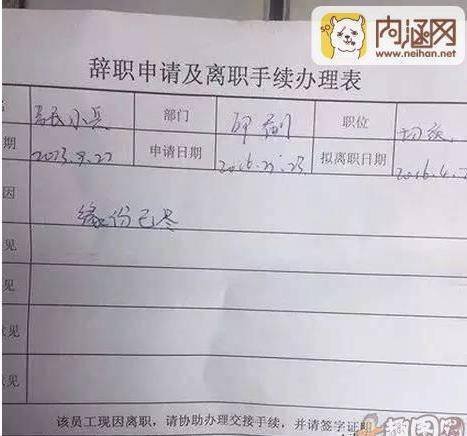 内涵网
www.neihan.net
辞职申请及离职手续办理表
小兵 部门 印刷 职位
期 2013.9.22 申请日期 拟离职日期
因 缘份已尽
见
见
见
见
该员工现因离职，请协助办理交接手续，并请签字证明